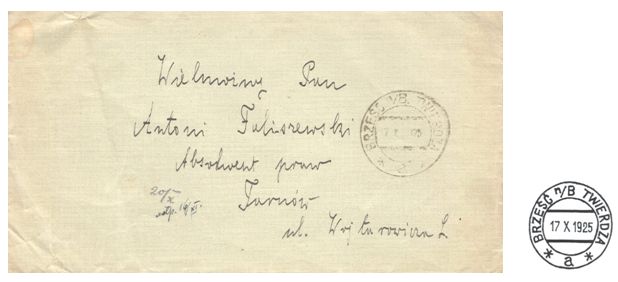 Wielmożny Pan
Antoni Faliszewski
Absolwent praw
Tarnów
ul. Wojtarowicza 2
20/X
odp.
BRZEŚĆ n/B. TWIERDZA
7 X 1925
* a *
BRZEŚĆ n/B TWIERDZA
17 X 1925
* a *